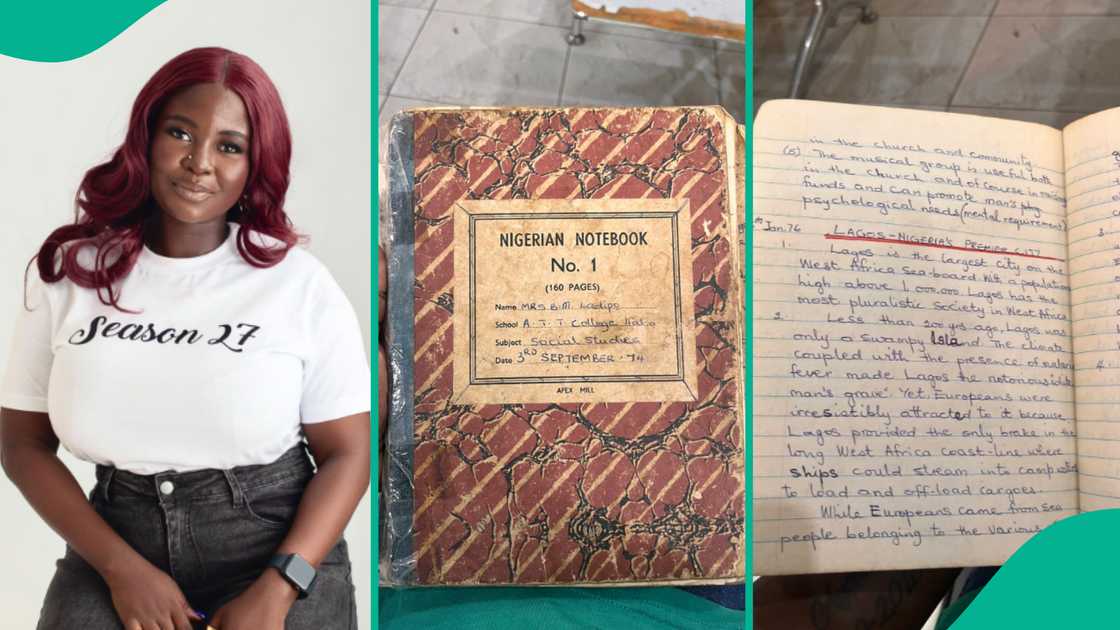 Season 27
NIGERIAN NOTEBOOK
No. 1
(160 PAGES)
Name MRS B.M. Ladipo
School A.T.T College
Subject Social Studies
Date 3RD SEPTEMBER '74
APEX MILL
in the church and community
(5) The musical group is useful both
in the church and of course in
funds and can promote man's
psychological needs (mental requirement)
Jan. 76 LAGOS - NIGERIA'S PREMIER CITY
1. Lagos is the largest City on the
West Africa sea-board. With a population
high above 1,000.000. Lagos has the
most pluralistic society in West Africa
2. Less than 200 yrs ago, Lagos was
only a swampy Island. The climate
coupled with the presence of
fever made Lagos the notorious
man's grave'. Yet Europeans were
irresistibly attracted to it because
Lagos provided the only brake in the
long West Africa coast-line where
ships could stream into
to load and off-load cargoes.
While Europeans came from sea
people belonging to the various